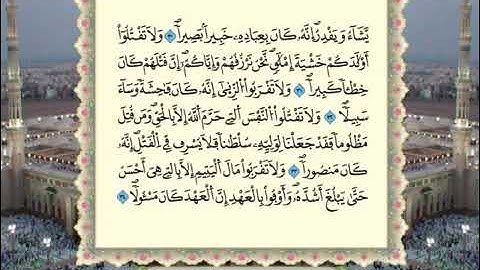 يَّشَآءُ وَيَقْدِرُ إِنَّهُۥ كَانَ بِعِبَادِهِۦ خَبِيرًۢا بَصِيرًا ۝٣٠ وَلَا تَقْتُلُوٓا۟
أَوْلَٰدَكُمْ خَشْيَةَ إِمْلَٰقٍ نَّحْنُ نَرْزُقُهُمْ وَإِيَّاكُمْ إِنَّ قَتْلَهُمْ كَانَ
خِطْـًٔا كَبِيرًا ۝٣١ وَلَا تَقْرَبُوا۟ ٱلزِّنَىٰٓ إِنَّهُۥ كَانَ فَٰحِشَةً وَسَآءَ
سَبِيلًا ۝٣٢ وَلَا تَقْتُلُوا۟ ٱلنَّفْسَ ٱلَّتِى حَرَّمَ ٱللَّهُ إِلَّا بِٱلْحَقِّ وَمَن قُتِلَ
مَظْلُومًا فَقَدْ جَعَلْنَا لِوَلِيِّهِۦ سُلْطَٰنًا فَلَا يُسْرِف فِّى ٱلْقَتْلِ إِنَّهُۥ
كَانَ مَنصُورًا ۝٣٣ وَلَا تَقْرَبُوا۟ مَالَ ٱلْيَتِيمِ إِلَّا بِٱلَّتِى هِىَ أَحْسَنُ
حَتَّىٰ يَبْلُغَ أَشُدَّهُۥ وَأَوْفُوا۟ بِٱلْعَهْدِ إِنَّ ٱلْعَهْدَ كَانَ مَسْـُٔولًا ۝٣٤